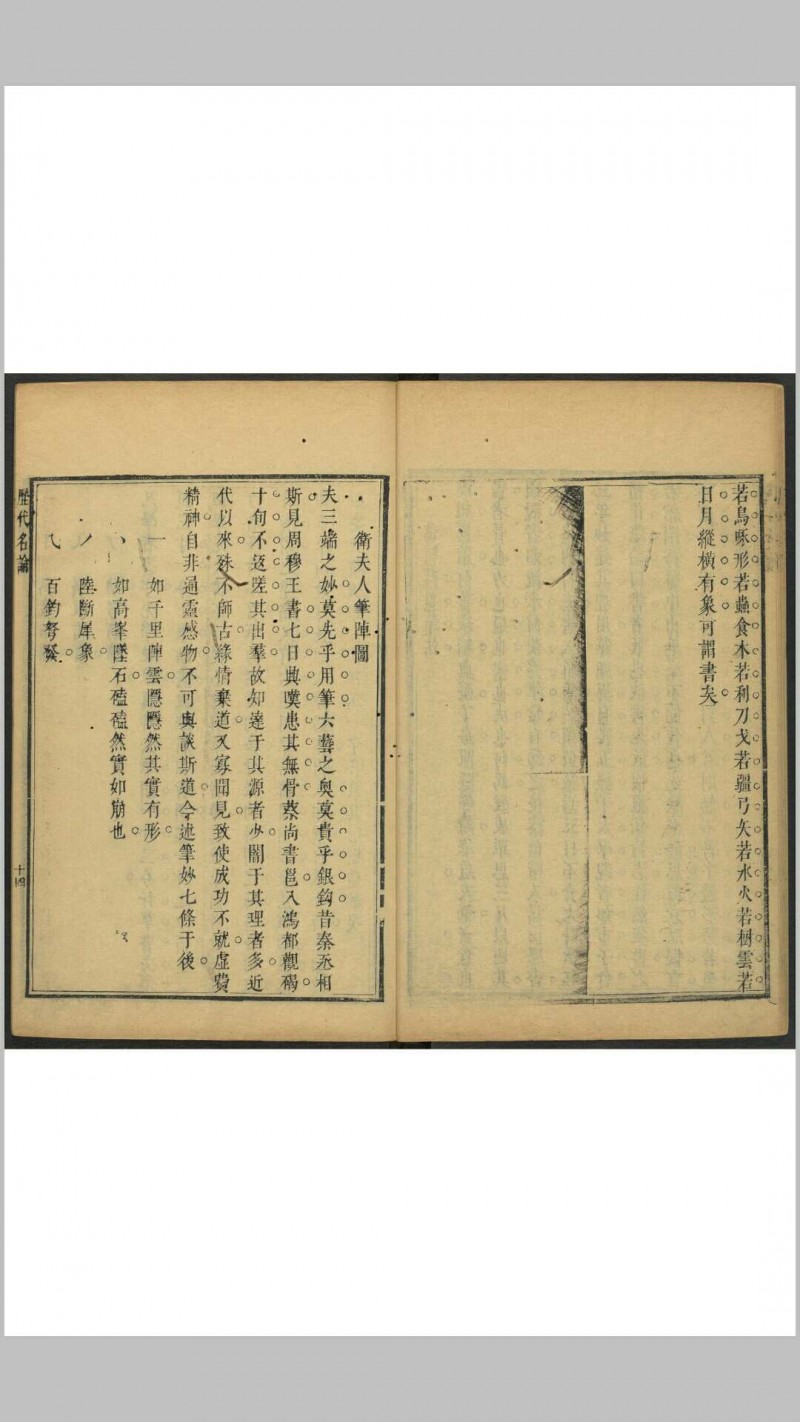 若鳥啄形若蟲食木若利刀戈若疆弓矢若水火若樹雲若
日月縱橫有象可謂書矣
衛夫人筆陣圖
夫三端之妙莫先乎用筆六藝之奧莫貴乎銀鈎昔秦丞相
斯見周穆王書七日興嘆患其無骨蔡尚書邕入鴻都觀碣
十旬不返嗟其出羣故知達于其源者少闇于其理者多近
代以來殊不師古緣情棄道又寡聞見致使成功不就虛費
精神自非通靈感物不可與談斯道今述筆妙七條于後
一 如千里陣雲隱隱然其實有形
丶 如高峯墜石磕磕然實如崩也
丿 陸斷犀象
乀 百鈞弩發
歷代名論
十四